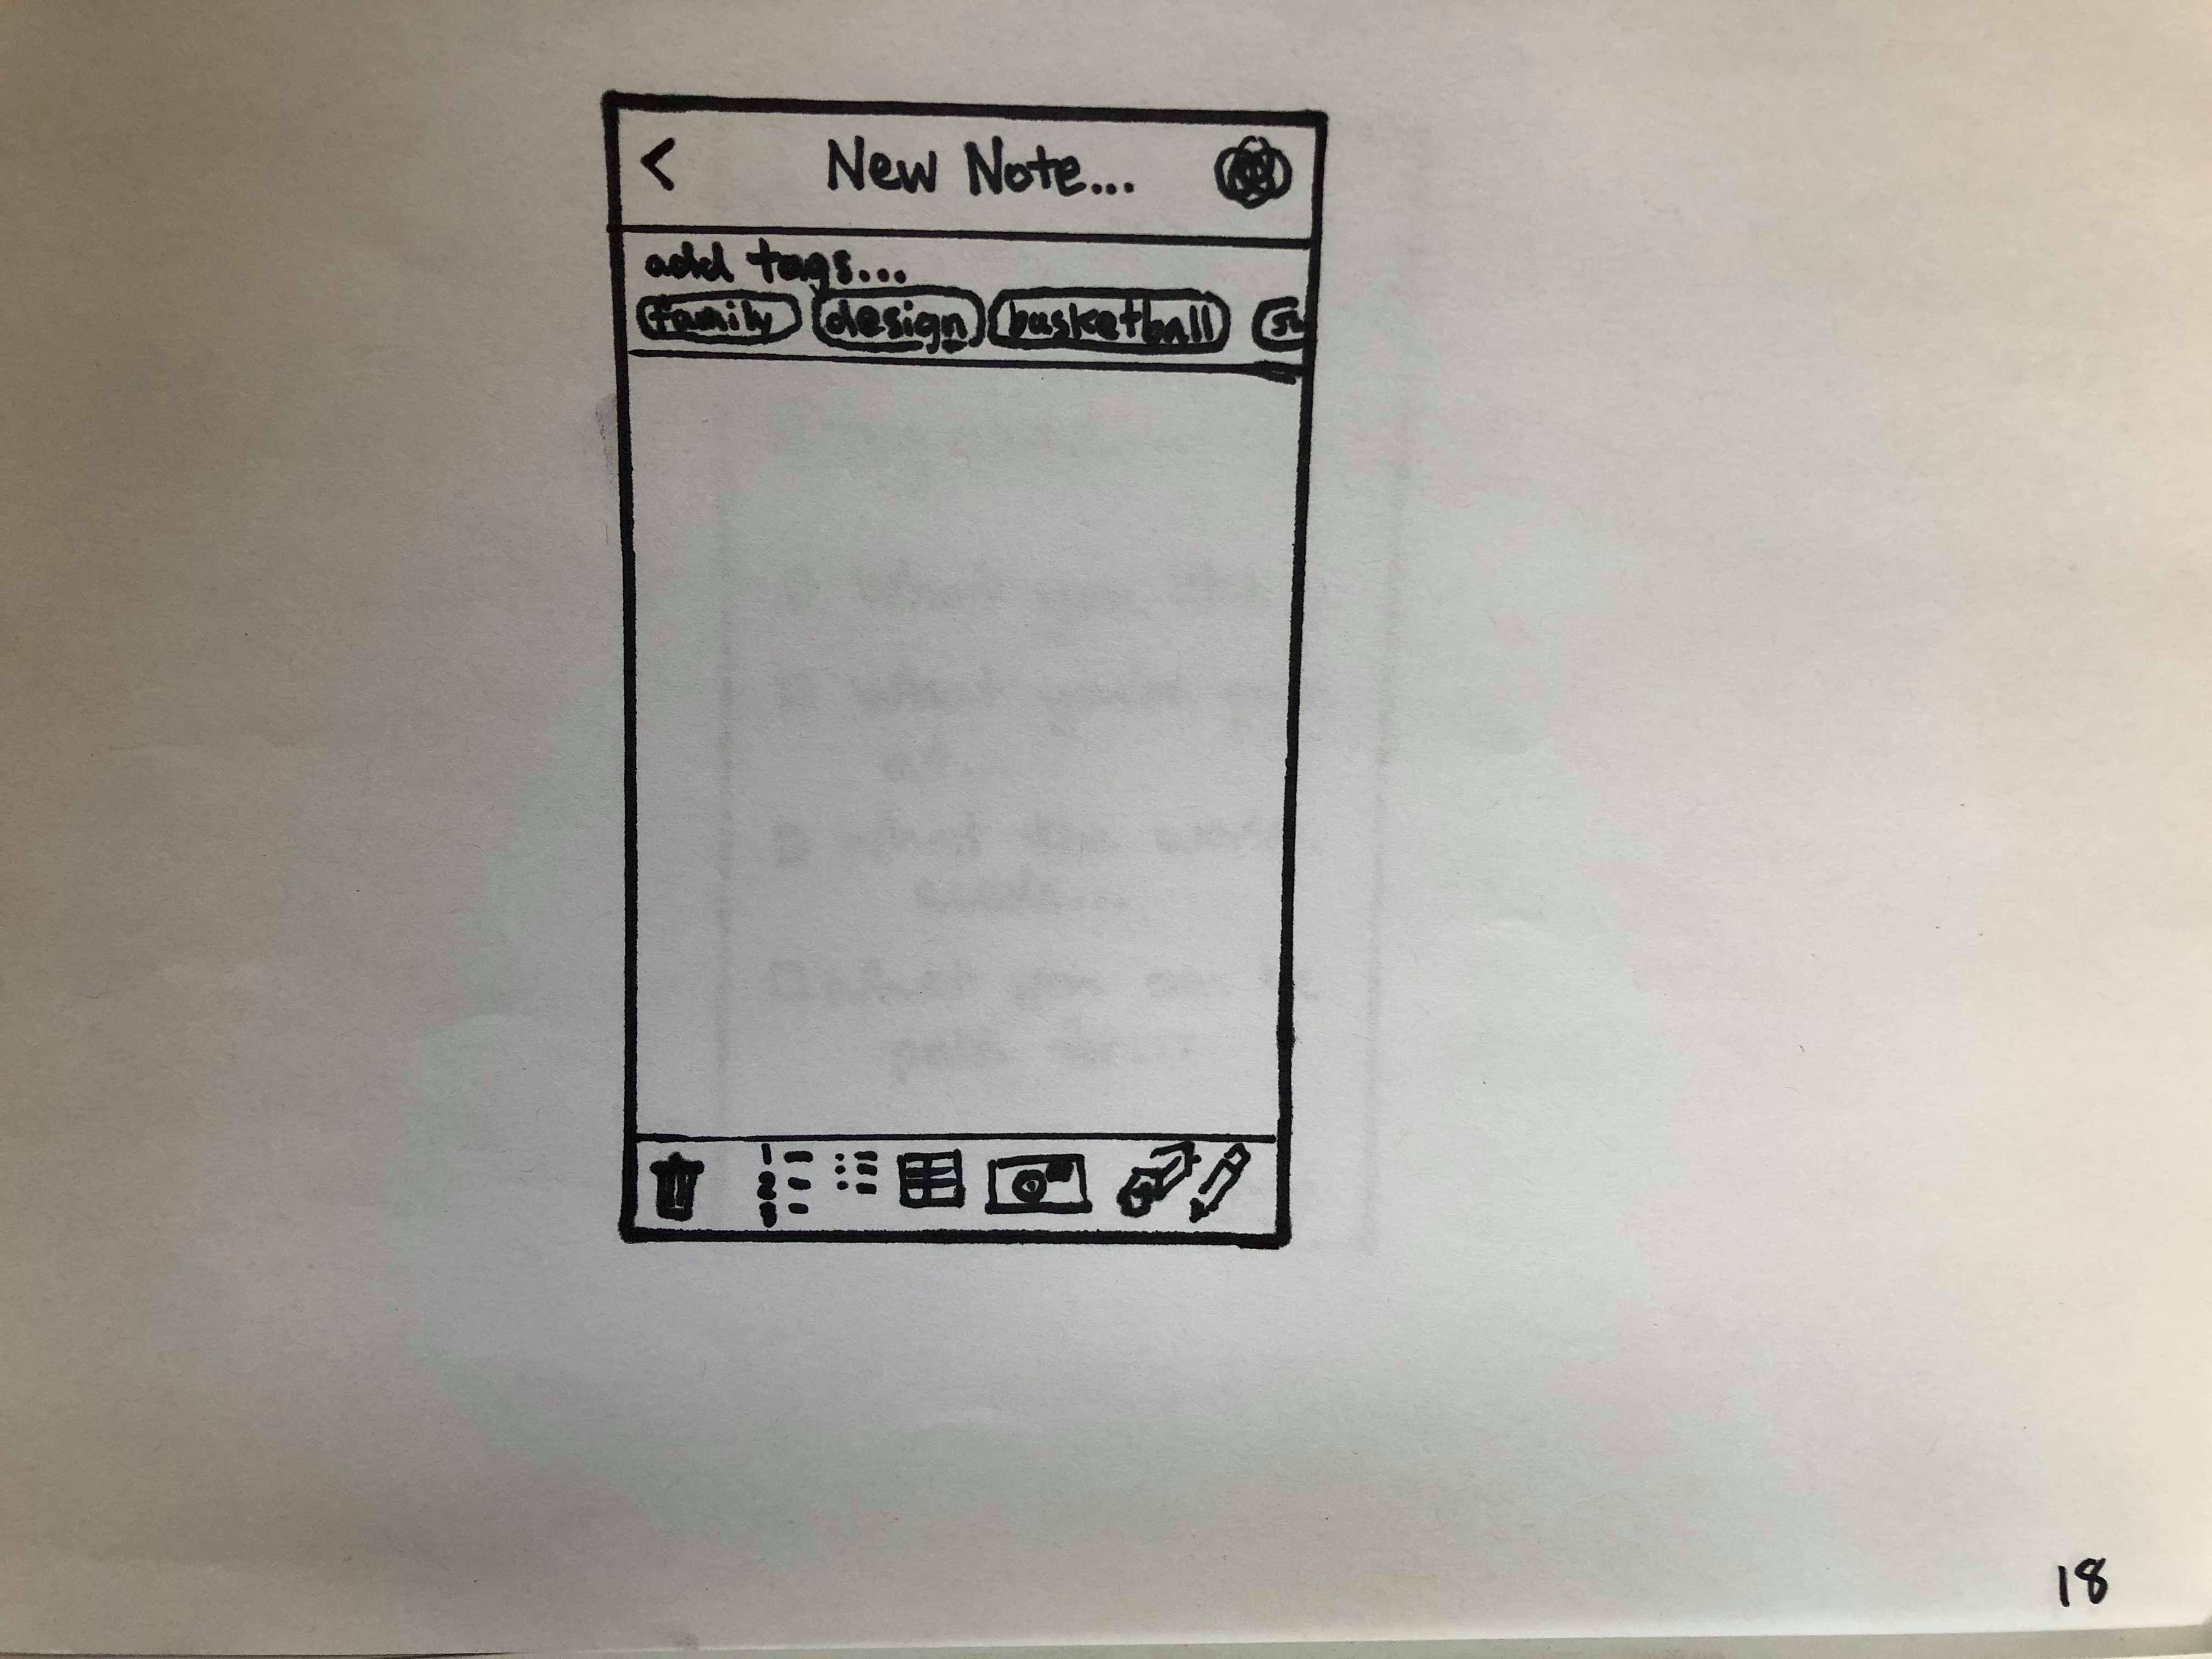 < New Note...
add tags...
family design basketball
1
2
3
18